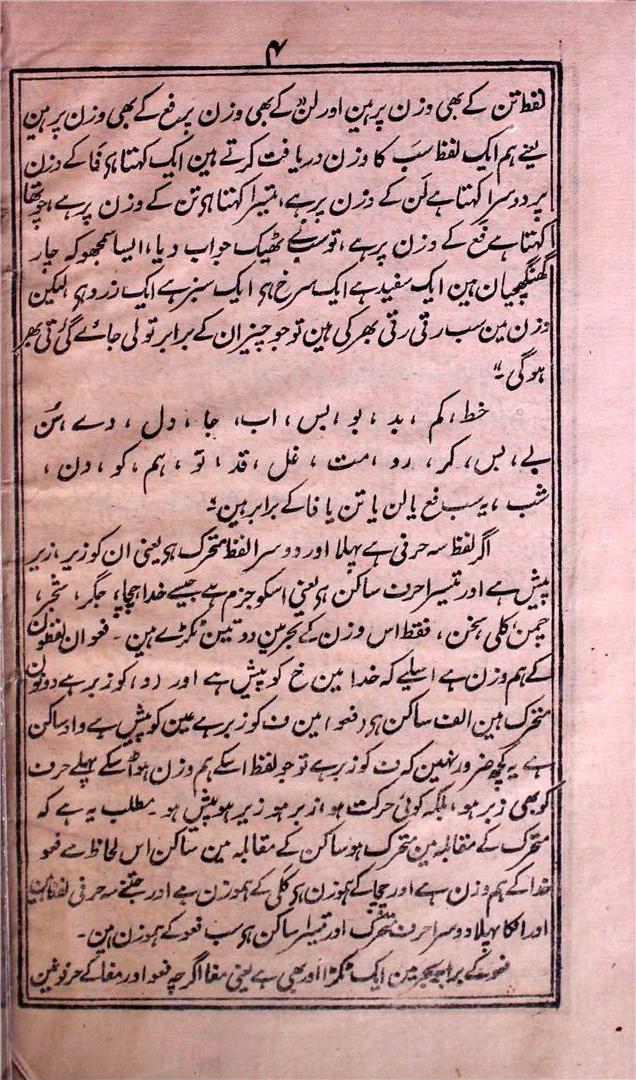 ۴
لفظ تن کے بھی وزن پر ہین اور لن کے بھی وزن پر فع کے بھی وزن پر ہین
یعنے ہم ایک لفظ سَب کا وزن دریافت کرتے ہین ایک کہتا ہی فَا کے وزن
پر دوسرا کہتا ہے لَن کے وزن پر ہے، تیسرا کہتا ہی تن کے وزن پر ہے، چوتھا
کہتا ہے فع کے وزن پر ہے، تو سب نے ٹھیک جواب دیا، ایسا سمجھو کہ چار
گھنگھچیان ہین ایک سفید ہے ایک سرخ ہی ایک سبز ہے ایک زرد ہی لیکن
وزن مین سب رتی رتی بھر کی ہین تو جو چیز ان کے برابر تولی جائے گی رتی بھر
ہو گی ۔
خط، کم ، بد ، بو ، بس ، اب، جا ، دل ، دے ، سُن
بے، بس، کر، رو ، مت ، غل ، قد ، تو ، ہم ، کو ، دن ،
شب ، یہ سب فع یا لن یا تن یا فا کے برابر ہین ۔
اگر لفظ سہ حرفی ہے پہلا اور دوسرا لفظ متحرک ہی یعنی ان کو زیر، زبر
پیش ہے اور تیسرا حرف ساکن ہی یعنی اسکو جزم ہے جیسے خدا، چچا، جگر، شجر،
چمن، کلی، سخن ، فقط اس وزن کے بحر مین دو تین ٹکڑے ہین ۔ فعو ان لفظون
کے ہم وزن ہے اسلیے کہ خدا مین خ کو پیش ہے اور (د) کو زبر ہے دونون
متحرک ہین الف ساکن ہی (فعو) مین ف کو زبر ہے عین کو پیش ہے واو ساکن
ہے یہ کچھ ضرور نہین کہ ف کو زبر ہے تو جو لفظ اسکے ہم وزن ہو اسکے پہلے حرف
کو بھی زبر ہو ، بلکہ کوئی حرکت ہو ، زبر ہو زیر ہو پیش ہو ۔ مطلب یہ ہے کہ
متحرک کے مقابلہ مین متحرک ہو ساکن کے مقابلہ مین ساکن اس لحاظ سے فعو
خدا کے ہم وزن ہے اور چچا کے ہموزن ہی کلی کے ہموزن ہے اور جتنے سہ حرفی لفظ ہین
اور انکا پہلا دوسرا حرف متحرک اور تیسرا ساکن ہو سب فعو کے ہموزن ہین ۔
فعو کے برابر بحر مین ایک ٹکڑا اور بھی ہے یعنی مفا اگرچہ فعو اور مفا کے حرفونمین